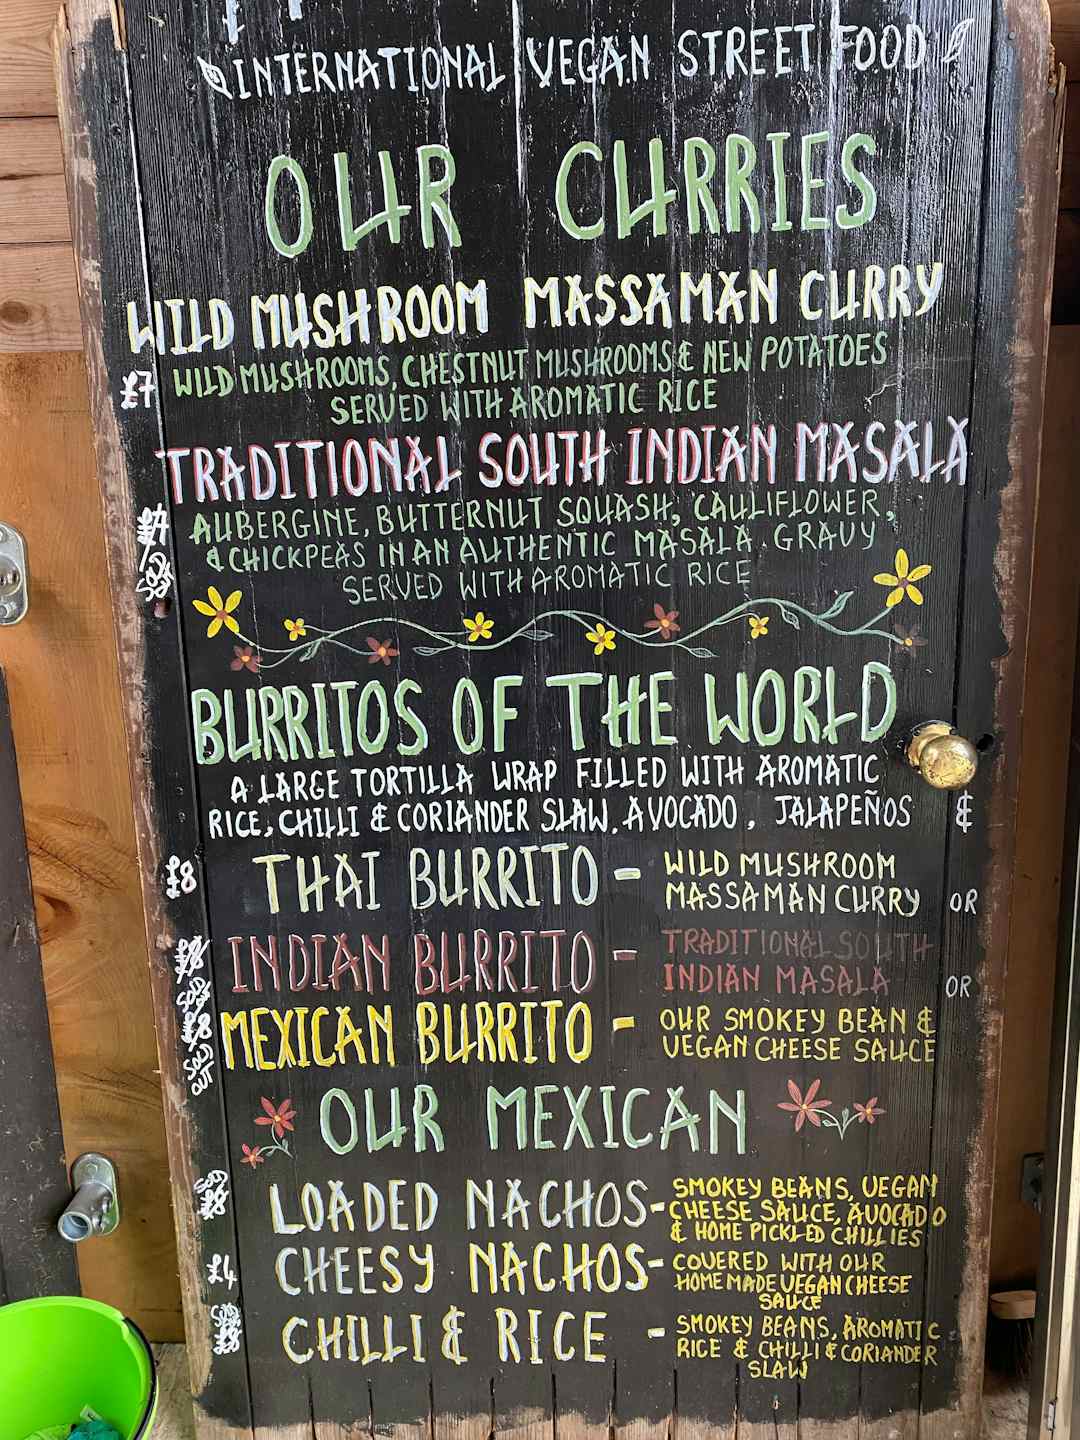 INTERNATIONAL VEGAN STREET FOOD
OUR CURRIES
WILD MUSHROOM MASSAMAN CURRY
£7 WILD MUSHROOMS, CHESTNUT MUSHROOMS & NEW POTATOES
SERVED WITH AROMATIC RICE
TRADITIONAL SOUTH INDIAN MASALA
£7 AUBERGINE, BUTTERNUT SQUASH, CAULIFLOWER,
& CHICKPEAS IN AN AUTHENTIC MASALA GRAVY
SERVED WITH AROMATIC RICE
BURRITOS OF THE WORLD
A LARGE TORTILLA WRAP FILLED WITH AROMATIC
RICE, CHILLI & CORIANDER SLAW, AVOCADO, JALAPEÑOS &
£8 THAI BURRITO - WILD MUSHROOM
MASSAMAN CURRY OR
£8 SOLD OUT INDIAN BURRITO - TRADITIONAL SOUTH
INDIAN MASALA OR
£8 SOLD OUT MEXICAN BURRITO - OUR SMOKEY BEAN &
VEGAN CHEESE SAUCE
OUR MEXICAN
SOLD £8 LOADED NACHOS - SMOKEY BEANS, VEGAN
CHEESE SAUCE, AVOCADO
& HOME PICKLED CHILLIES
£4 CHEESY NACHOS - COVERED WITH OUR
HOMEMADE VEGAN CHEESE
SAUCE
SOLD £8 CHILLI & RICE - SMOKEY BEANS, AROMATIC
RICE & CHILLI & CORIANDER
SLAW